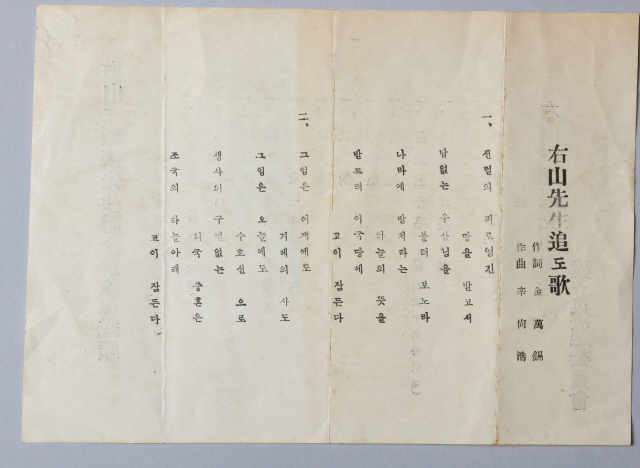 右山先生追도歌
作詞 金萬錫
作曲 辛尙澔
一、선렬의 피로영긴
땅을 받고서
답없는 우산님을
불러 보노라
나라에 밥적다는
하늘의 뜻을
받드러 이국땅에
고이 잠든다
二、그임은 어제에도
겨레의 사도
그임은 오늘에도
수호신 으로
생사의 구별없는
애국 충혼은
조국의 하늘아래
고이 잠든다